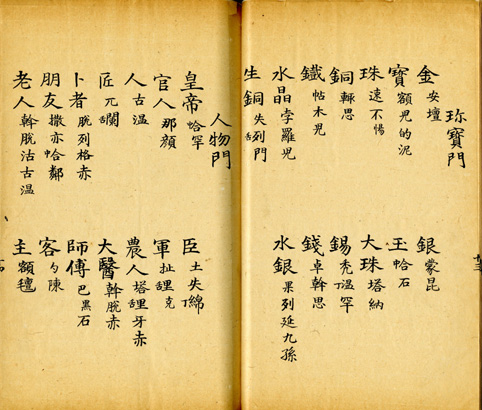 珍寶門
金 安壇 銀 蒙昆
寶 額兒的泥 玉 帢石
珠 速不惕 大珠 塔納
銅 轍思 錫 禿溫罕
鐵 帖木兒 錢 卓斡思
水晶 孛羅兒 水銀 果列延九孫
生銅 失舌列門
人物門
皇帝 帢罕 臣 土失綿丁
官人 那顏 軍 扯舌里克
人 古溫 農人 塔舌里牙赤
匠 兀闌 大醫 斡脫赤
卜者 脫列格赤 師傅 巴黑石
朋友 撒亦帢鄰 客 勺陳
老人 斡脫沽古溫 主 額氊